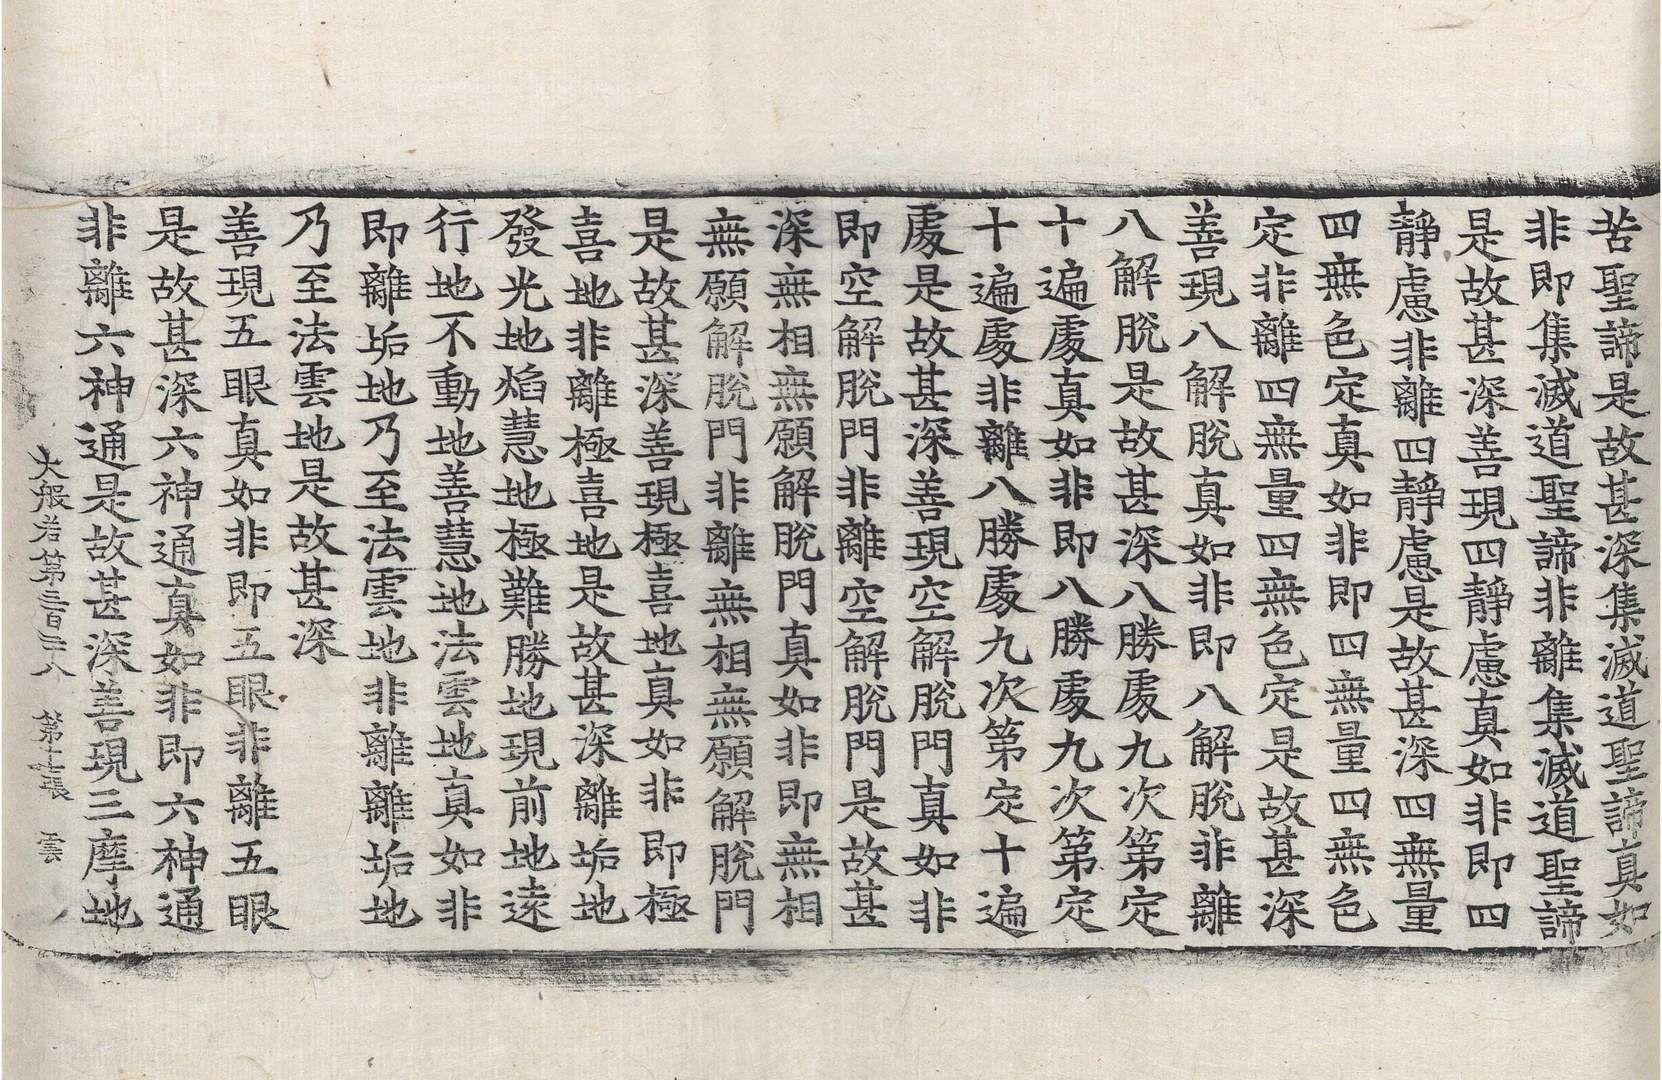 苦聖諦是故甚深集滅道聖諦真如
非即集滅道聖諦非離集滅道聖諦
是故甚深善現四靜慮真如非即四
靜慮非離四靜慮是故甚深四無量
四無色定真如非即四無量四無色
定非離四無量四無色定是故甚深
善現八解脫真如非即八解脫非離
八解脫是故甚深八勝處九次第定
十遍處真如非即八勝處九次第定
十遍處非離八勝處九次第定十遍
處是故甚深善現空解脫門真如非
即空解脫門非離空解脫門是故甚
深無相無願解脫門真如非即無相
無願解脫門非離無相無願解脫門
是故甚深善現極喜地真如非即極
喜地非離極喜地是故甚深離垢地
發光地焰慧地極難勝地現前地遠
行地不動地善慧地法雲地真如非
即離垢地乃至法雲地非離離垢地
乃至法雲地是故甚深
善現五眼真如非即五眼非離五眼
是故甚深六神通真如非即六神通
非離六神通是故甚深善現三摩地
大般若第三百二十八 第十七張 雲